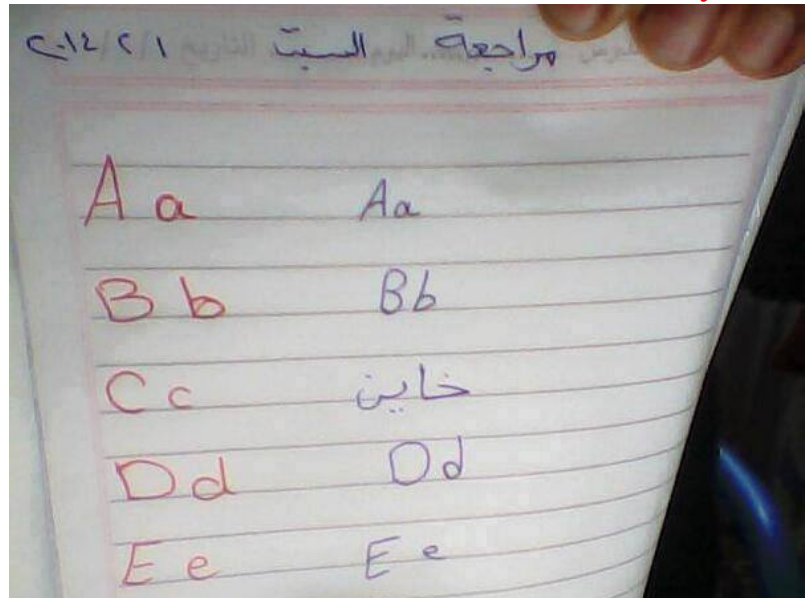 مراجعة السبت التاريخ ٢٠١٤/٢/١
A a Aa
B b Bb
C c خاين
D d Dd
E e E e